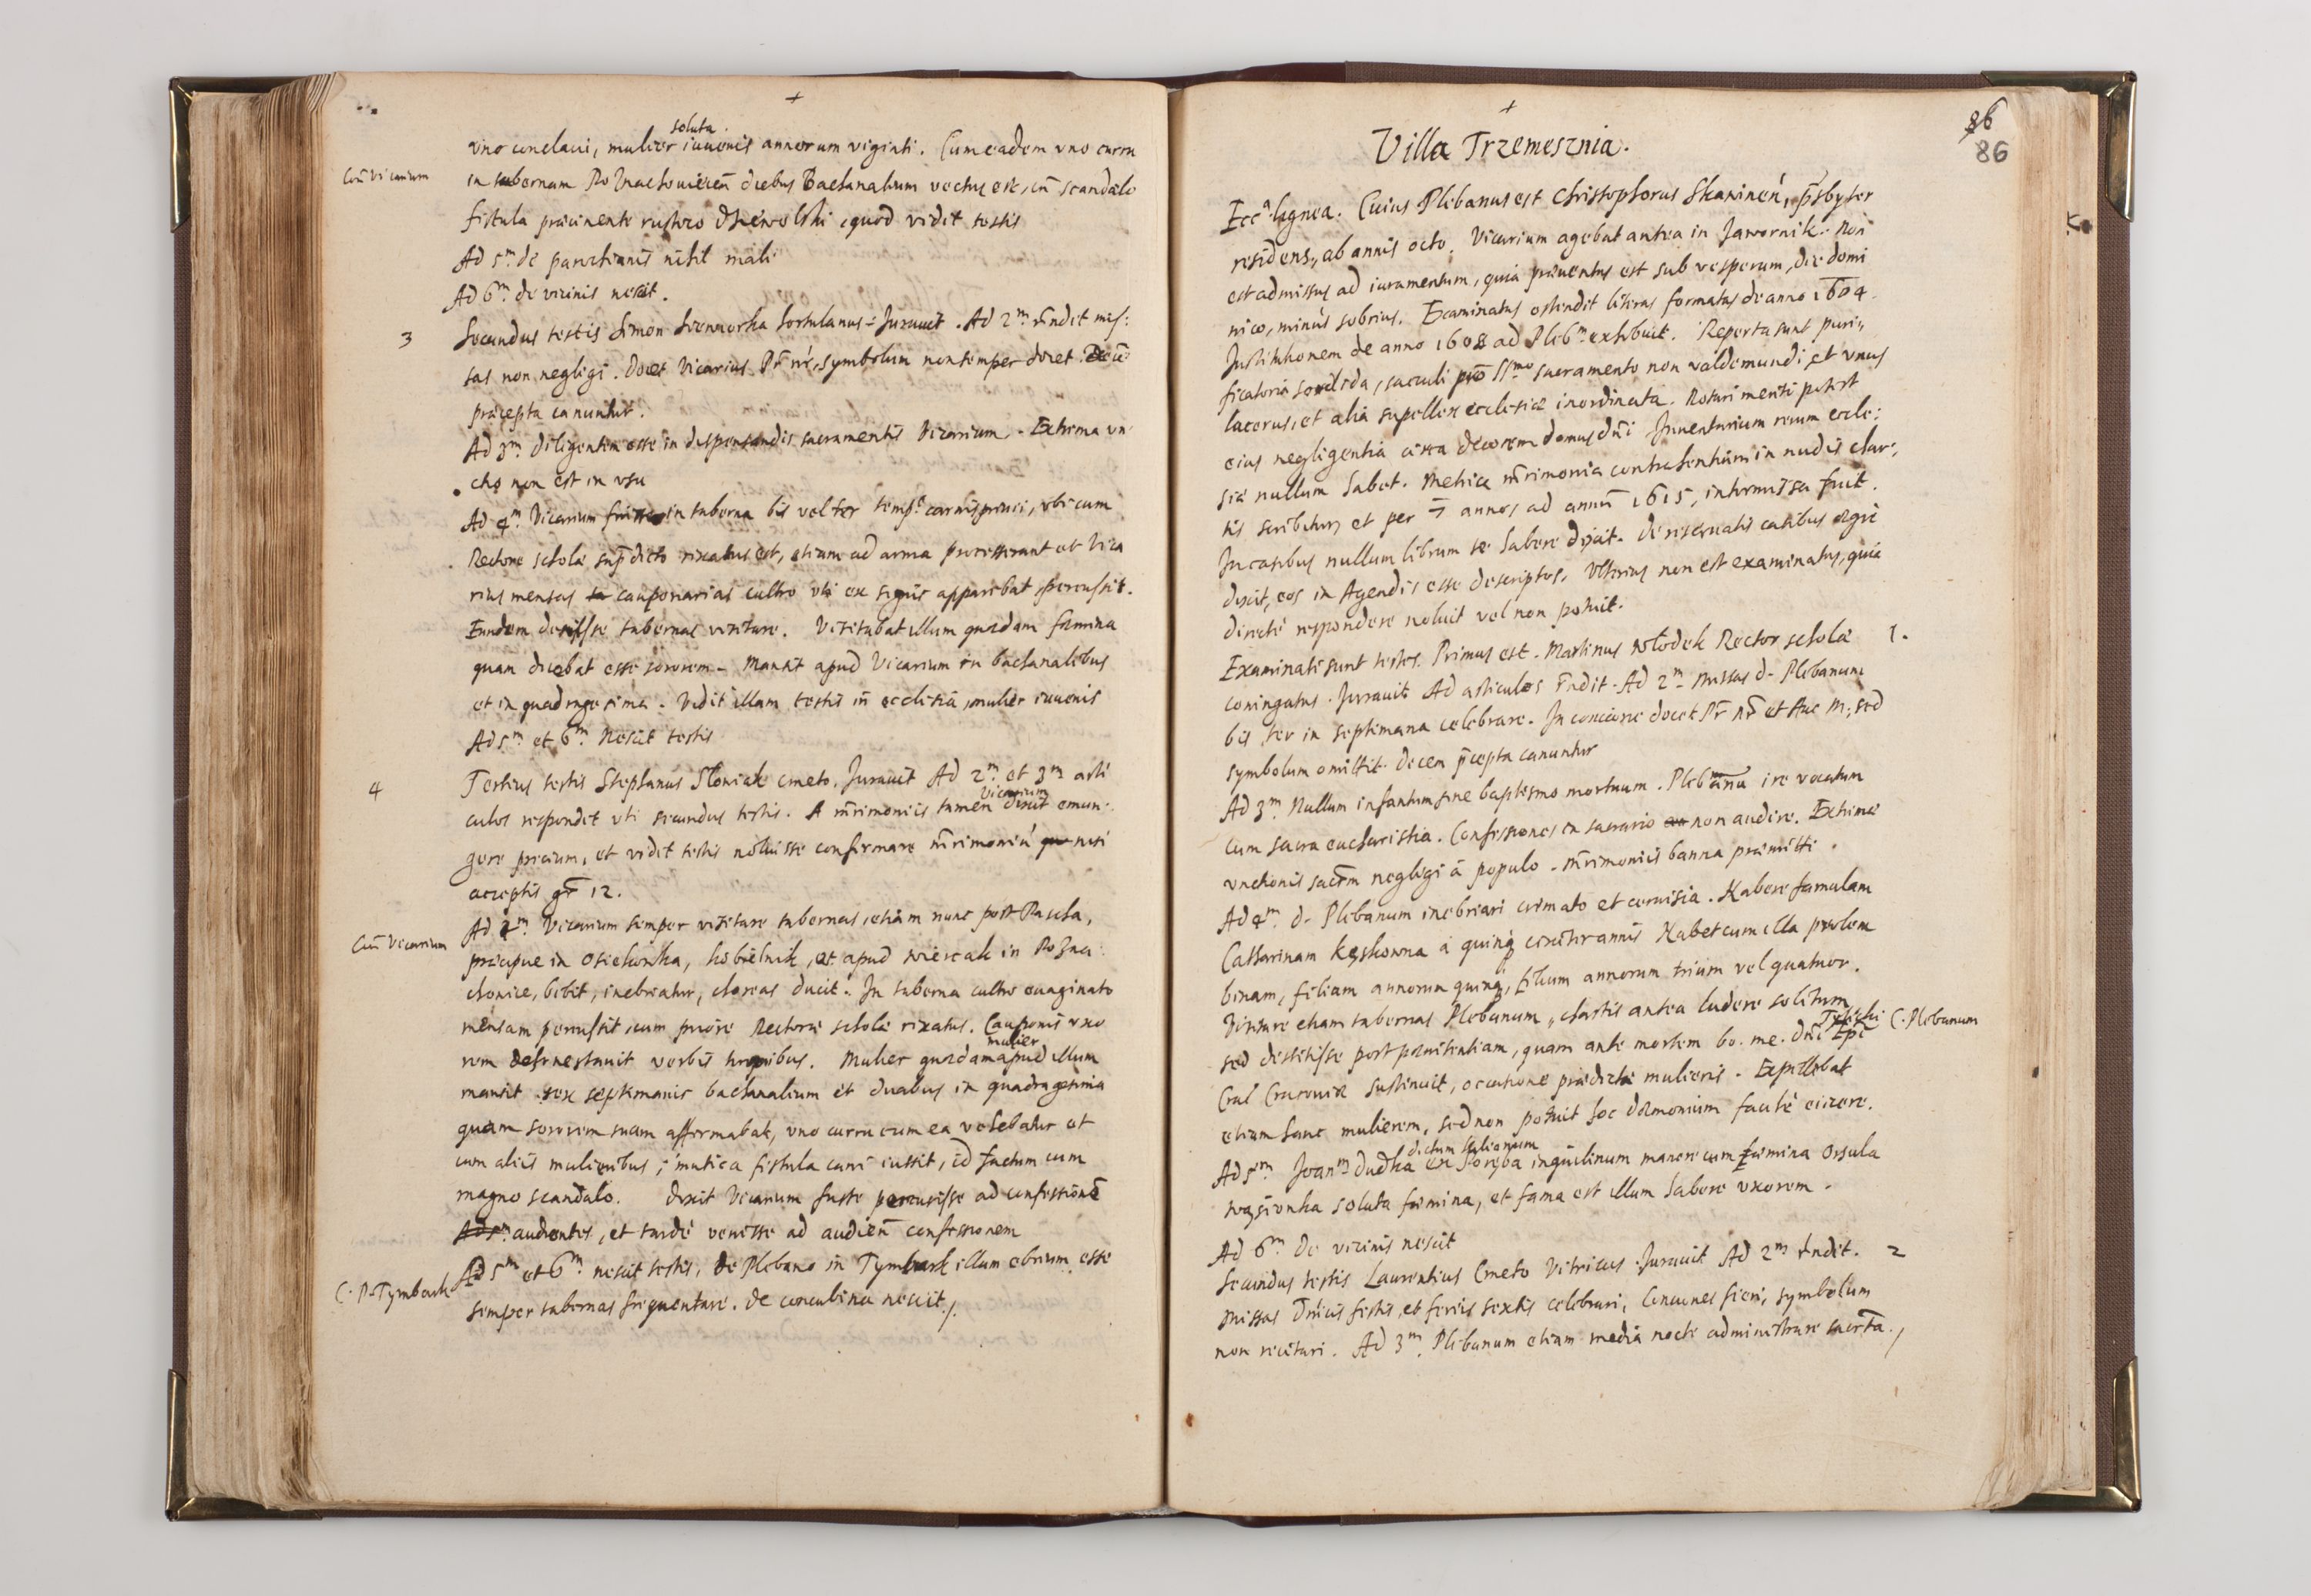 +
soluta
vno conclaui, mulier iuuenis annorum viginti. Cum eadem vno curru
Cōn̄ Vicarium
in tabernam diebus Bachanalium vectus est, cū scandalo
fistula præcinente rustico quod vidit testis
Ad 5m de parochianis nihil mali
Ad 6m de vicinis nescit.
3
Secundus testis Simon hortulanus. Jurauit. Ad 2m rn̄dit mis:
sas non negligi. Docet Vicarius Pr̄ nr̄, symbolum non semper docet. Decē
præcepta canuntur.
Ad 3m diligentem esse in dispensandis sacramentis Vicarium. Extrema vn
ctio non est in vsu
Ad 4m Vicarium fuisse in taberna bis vel ter temp.e carnispriuii, vbi cum
Rectore scholæ sup̄dicto rixatus est, etiam ad arma processerant et Vica
rius mensas cauponarias cultro vti ex signis apparebat, percussit.
Eundem desijsse tabernas visitare. Visitabat illum quædam fœmina
quam dicebat esse sororem. Mansit apud Vicarium in bachanalibus
et in quadragesima. Vidit illam testis in ecclesia, mulier iuuenis
Ad 5m et 6m Nescit testis
4
Tertius testis Stephanus Sloniak cmeto. Jurauit Ad 2m et 3m arti
Vicarium
culos respondet vti secundus testis. A mr̄imoniis tamen dixit emun:
gere precium, et vidit testis noluisse confirmare mr̄imoniū nisi
acceptis gr̄ 12.
Ad 4m Vicarium semper visitare tabernas, etiam nunc post Pascha,
Cōn̄ Vicarium
præcipue in Osiekowka, kobielnik, et apud wiercak in Rozna:
chouice, bibit, inebriatur, choreas ducit. In taberna cultro euaginato
mensam percussit, cum priore Rectore scholæ rixatus. Cauponis vxo
mulier
rem dehonestauit verbis turpibus. Mulier quædam apud illum
mansit sex septimanis bachanalium et duabus in quadragesima
quam sororem suam affirmabat, vno curru cum ea vehebatur et
cum aliis mulieribus, mutica fistula cani iussit, id factum cum
magno scandalo. dixit Vicarium fuste percussisse ad confessionē
Ad 5m audientes, et tarde venisse ad audien̄ confessionem
Ad 5m et 6m nescit testis, de Plebano in Tymbark illum ebrium esse
C. P. Tymbark
semper tabernas frequentare. de concubina nescit./.
+
86
86
Villa Trzemesznia.
Eccā lignea. Cuius Plebanus est Christophorus Skaminen̄, p̄sbyter
residens, ab annis octo. Vicarium agebat antea in Jawornik. Non
est admissus ad iuramentum, quia præuentus est sub vesperum, die domi
nico, minus sobrius. Examinatus ostendit literas formatas de anno 1604.
Institutionem de anno 1608 ad Pleb.m exhibuit. Reperta sunt puri,,
ficatoria sordida, sacculi pro SSmo sacramento non valde mundi, et vnus
lacerus, et alia supellex ecclesiæ inordinata. Notari meriti potest
eius negligentia circa decorem domus dn̄i Inuentarium rerum eccle:
siæ nullum habet. Metrica mr̄imonia contrahentium in nudis char:
tis scribitur, et per 7 annos ad annū 1615, intermissa fuit.
In casibus nullum librum se habere dixit. de reseruatis casibus ægre
dixit, eos in Agendis esse descriptos. Vlterius non est examinatus, quia
directe respondere noluit vel non potuit.
Examinati sunt testes. Primus est. Martinus Wlodek Rector scholæ
1.
coniugatus. Jurauit Ad articulos rn̄dit. Ad 2m missas d. Plebanum
bis, ter in septimana celebrare. In concione docet Pr̄ nr̄ et Aue M: sed
symbolum omittit. decem p̄cepta canuntur
Ad 3m Nullum infantum sine baptismo mortuum. Plebanū ire vocatum
cum sacra eucharistia. Confessiones in sacrario non audire. Extremæ
vnctionis sacrm̄ negligi a populo. Mr̄imoniis banna præmitti.
Ad 4m d. Plebanum inebriari cremato et ceruisia. Habere famulam
Catharinam Kęskowna a quinq̨ circiter annis Habet cum illa prolem
binam, filiam annorum quinq̨, filium annorum trium vel quatuor.
Visitare etiam tabernas Plebanum, chartis antea ludere solitum,
Tylicki
C. Plebanum
sed destitisse post pœnitentiam, quam ante mortem bo. me. dn̄i Epī
Cral Cracouiæ sustinuit, occasione prædictæ mulieris. Expellebat
etiam hanc mulierem, sed non potuit hoc dæmonium facile eiicere.
dictum
Ad 5m Joanm dudka ex Poręba inquilinum manere cum fœmina Orsula
soluta fœmina, et fama est illum habere vxorem.
Ad 6m de vicinis nescit
Secundus testis Laurentius Cmeto Vitricus. Jurauit Ad 2m rn̄dit.
2
missas dn̄icis festis, et feriis sextis celebrari, Conciones fieri, symbolum
non recitari. Ad 3m Plebanum etiam media nocte administrare sacrt̄a./